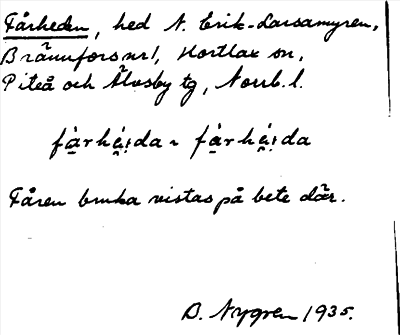 Fårheden, hed N. Erik-Larsamyren,
Brännfors nr 1, Hortlax sn,
Piteå och Älvsby tg, Norrb. l.
fårhé̹ida ~ fårhé̹ida
Fåren bruka vistas på bete där.
B. Nygren 1935.